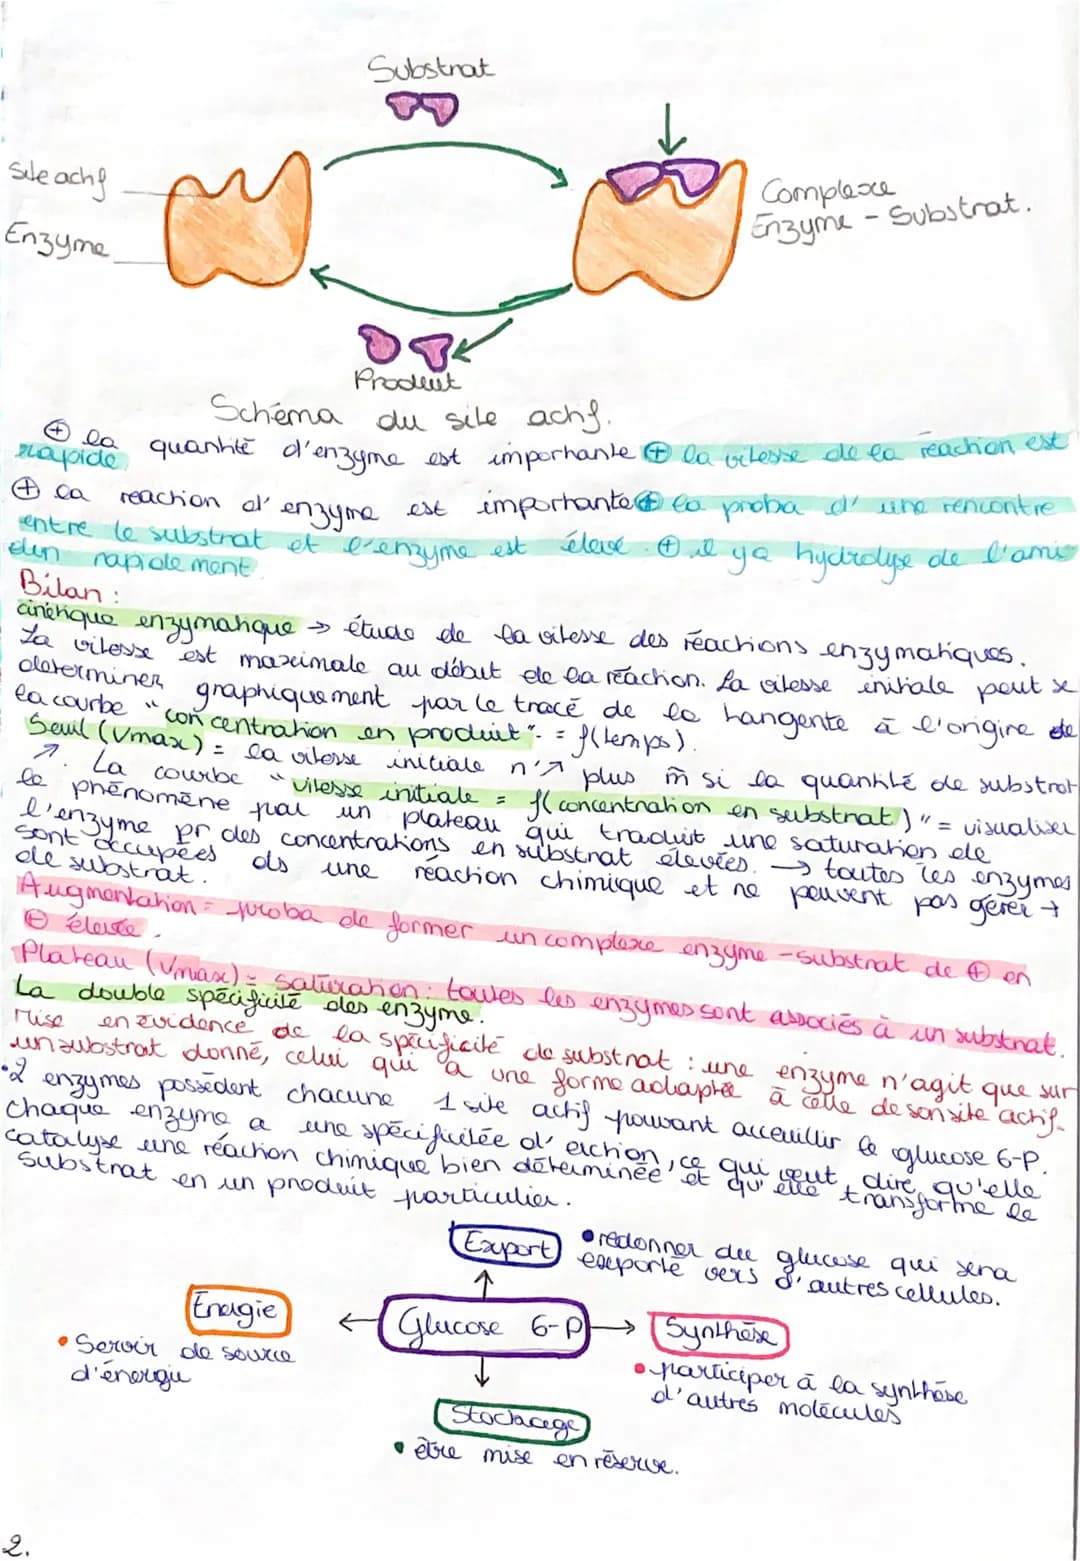 Substrat
Site actif
Enzyme
Complexe
Enzyme - Substrat.
Produit
Schéma du site actif.
⊕ la quantité d'enzyme est importante ⊕ la vitesse de la réaction est
rapide
⊕ la reaction d'enzyme est importante ⊕ la proba d'une rencontre
entre le substrat et l'enzyme est élevé. ⊕ il ya hydrolyse de l'ami
dun rapidement
Bilan :
cinétique enzymatique → étude de la vitesse des réactions enzymatiques.
La vitesse est maximale au début de la réaction. La vitesse initiale peut se
determiner graphiquement par le tracé de la tangente à l'origine de
la courbe "concentration en produit". = f(temps).
Seuil (Vmax) = la vitesse initiale n'↗ plus m̃ si la quantité de substrat
↗. La courbe "vitesse initiale = f(concentration en substrat)" = visualiser
le phénomène par un plateau qui traduit une saturation de
l'enzyme pr des concentrations en substrat élevées. → toutes les enzymes
sont occupées ds une réaction chimique et ne peuvent pas gérer +
de substrat.
Augmentation = proba de former un complexe enzyme - substrat de ⊕ en
⊕ élevée.
Plateau (Vmax) = Saturation : toutes les enzymes sont associés à un substrat.
La double spécificité des enzyme.
Mise en évidence de la spécificité de substrat : une enzyme n'agit que sur
un substrat donné, celui qui a une forme adaptée à celle de son site actif.
• 2 enzymes possèdent chacune 1 site actif pouvant acceuillir le glucose 6-P.
Chaque enzyme a une spécificitée d'action, ce qui veut dire qu'elle
catalyse une réaction chimique bien déterminée et qu'elle transforme le
substrat en un produit particulier.
Export
• redonner du glucose qui sera
exporté vers d'autres cellules.
Énergie
• Servir de source
d'énergie
Glucose 6-P
Synthèse
• participer à la synthèse
d'autres molécules
Stockage
• être mise en réserve.
2.